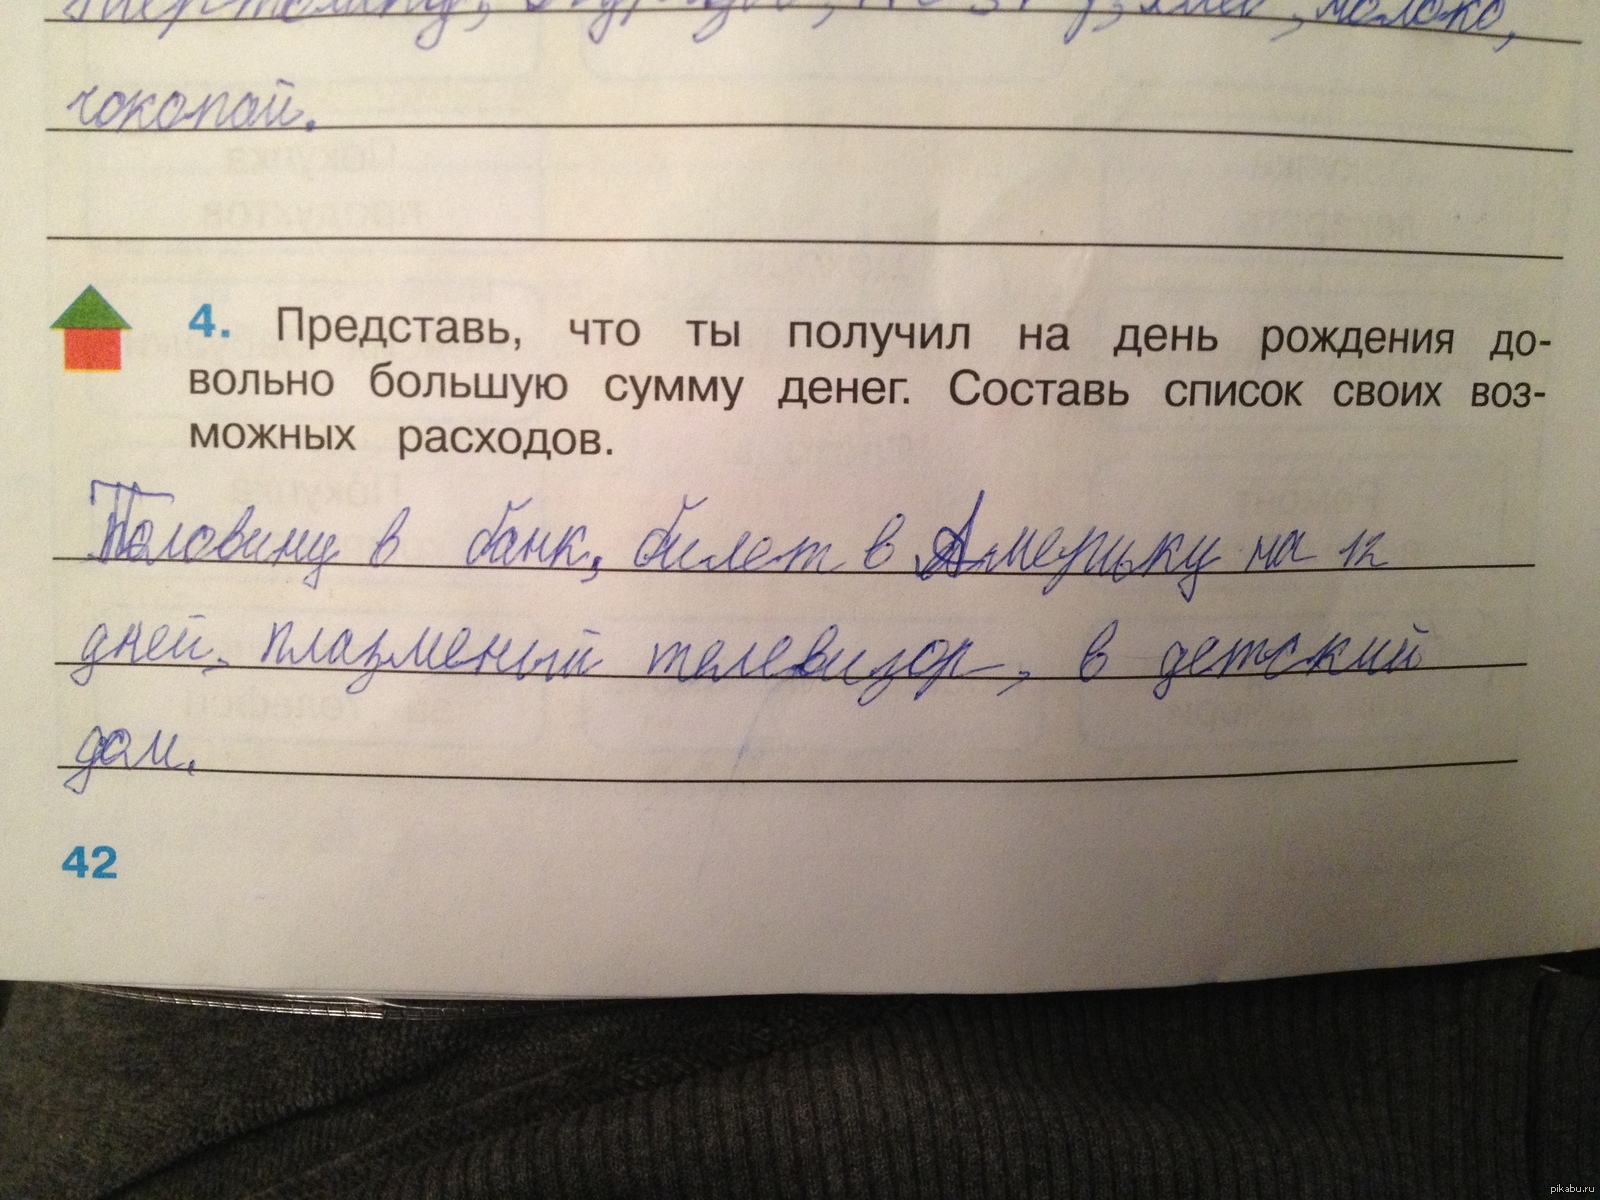 молоко,
чокопай.
4. Представь, что ты получил на день рождения до-
вольно большую сумму денег. Составь список своих воз-
можных расходов.
Половину в банк, билет в Америку на 12
дней, плазменый телевизор, в детский
дом.
42
pikabu.ru